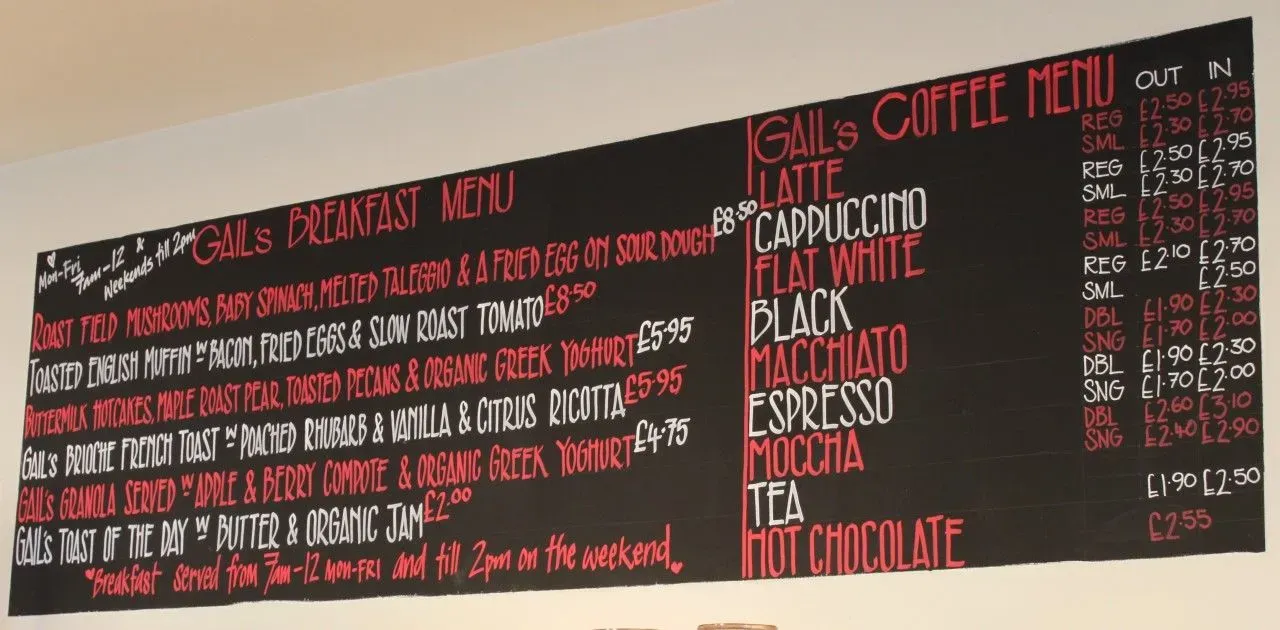 ♥ Mon-Fri 7am-12 & Weekends till 2pm
GAIL's BREAKFAST MENU
ROAST FIELD MUSHROOMS, BABY SPINACH, MELTED TALEGGIO & A FRIED EGG ON SOUR DOUGH £8.50
TOASTED ENGLISH MUFFIN w BACON, FRIED EGGS & SLOW ROAST TOMATO £8.50
BUTTERMILK HOTCAKES, MAPLE ROAST PEAR, TOASTED PECANS & ORGANIC GREEK YOGHURT £5.95
GAIL's BRIOCHE FRENCH TOAST w POACHED RHUBARB & VANILLA & CITRUS RICOTTA £5.95
GAIL's GRANOLA SERVED w APPLE & BERRY COMPOTE & ORGANIC GREEK YOGHURT £4.75
GAIL's TOAST OF THE DAY w BUTTER & ORGANIC JAM £2.00
♥Breakfast served from 7am-12 MON-FRI and till 2pm on the weekend.♥
GAIL's COFFEE MENU OUT IN
LATTE REG £2.50 £2.95
SML £2.30 £2.70
CAPPUCCINO REG £2.50 £2.95
SML £2.30 £2.70
FLAT WHITE REG £2.50 £2.95
SML £2.30 £2.70
BLACK REG £2.10 £2.70
SML £2.50
MACCHIATO DBL £1.90 £2.30
SNG £1.70 £2.00
ESPRESSO DBL £1.90 £2.30
SNG £1.70 £2.00
MOCCHA DBL £2.60 £3.10
SNG £2.40 £2.90
TEA £1.90 £2.50
HOT CHOCOLATE £2.55